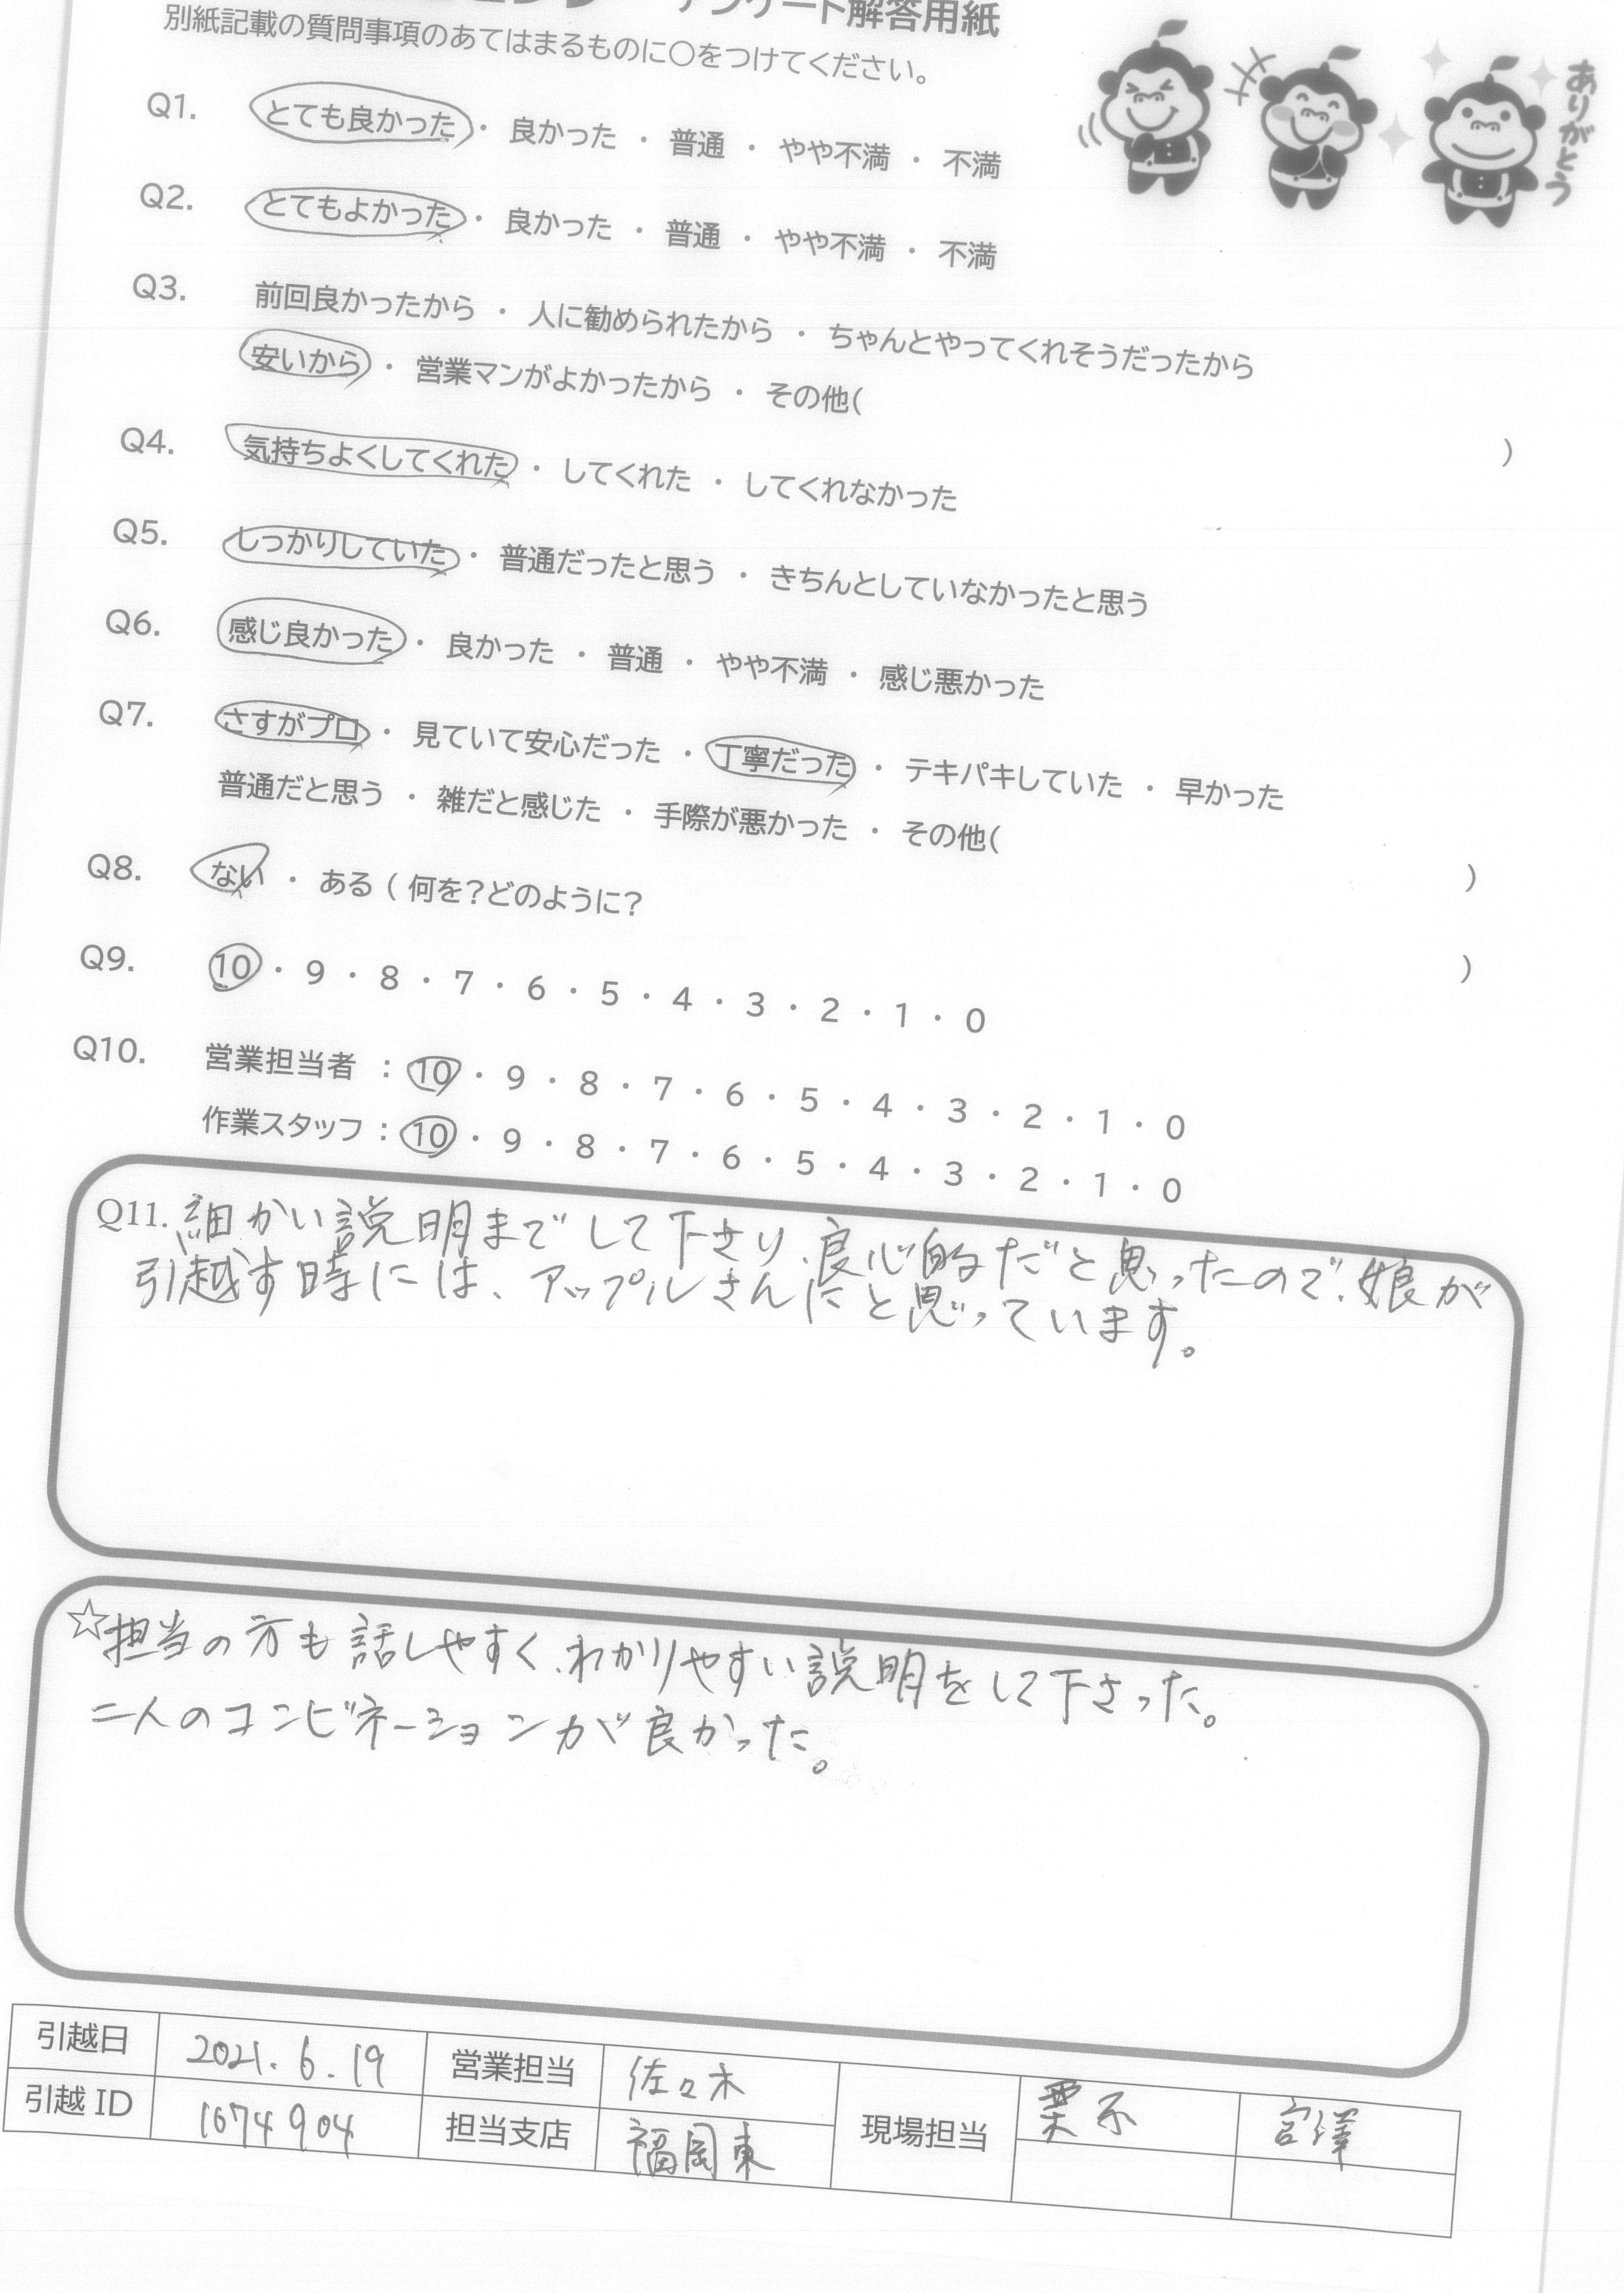 アンケート解答用紙
別紙記載の質問事項のあてはまるものに○をつけてください。
ありがとう
Q1. とても良かった ・ 良かった ・ 普通 ・ やや不満 ・ 不満
Q2. とてもよかった ・ 良かった ・ 普通 ・ やや不満 ・ 不満
Q3. 前回良かったから ・ 人に勧められたから ・ ちゃんとやってくれそうだったから
安いから ・ 営業マンがよかったから ・ その他( )
Q4. 気持ちよくしてくれた ・ してくれた ・ してくれなかった
Q5. しっかりしていた ・ 普通だったと思う ・ きちんとしていなかったと思う
Q6. 感じ良かった ・ 良かった ・ 普通 ・ やや不満 ・ 感じ悪かった
Q7. さすがプロ ・ 見ていて安心だった ・ 丁寧だった ・ テキパキしていた ・ 早かった
普通だと思う ・ 雑だと感じた ・ 手際が悪かった ・ その他( )
Q8. ない ・ ある ( 何を?どのように? )
Q9. 10 ・ 9 ・ 8 ・ 7 ・ 6 ・ 5 ・ 4 ・ 3 ・ 2 ・ 1 ・ 0
Q10. 営業担当者 : 10 ・ 9 ・ 8 ・ 7 ・ 6 ・ 5 ・ 4 ・ 3 ・ 2 ・ 1 ・ 0
作業スタッフ : 10 ・ 9 ・ 8 ・ 7 ・ 6 ・ 5 ・ 4 ・ 3 ・ 2 ・ 1 ・ 0
Q11. 細かい説明までして下さり、良心的だと思ったので、娘が
引越す時には、アップルさんにと思っています。
☆担当の方も話しやすく、わかりやすい説明をして下さった。
二人のコンビネーションが良かった。
引越日 2021.6.19 営業担当 佐々木 現場担当 宮澤
引越 ID 1674904 担当支店 福岡東